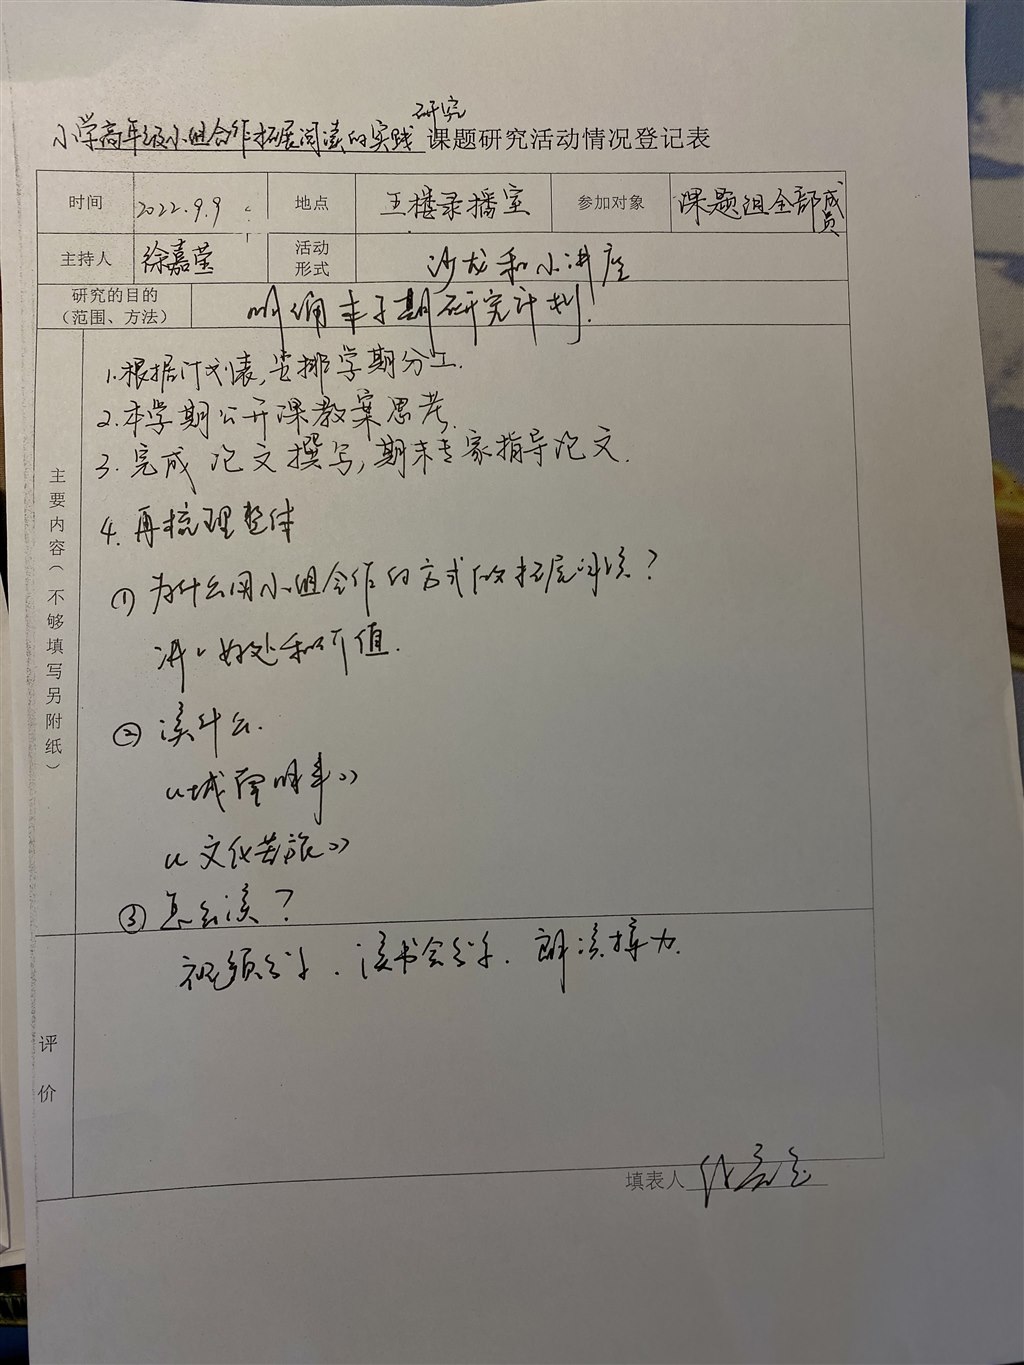 研究
小学高年级小组合作拓展阅读的实践 课题研究活动情况登记表
时间 2022.9.9 地点 王楼录播室 参加对象 课题组全部成员
主持人 徐嘉莹 活动形式 沙龙和小讲座
研究的目的（范围、方法） 明确本学期研究计划！
主要内容（不够填写另附纸）
1.根据计划表,安排学期分工.
2.本学期公开课教案思考.
3.完成论文撰写,期末专家指导论文.
4.再梳理整体
①为什么用小组合作的方式做拓展阅读？
讲、好处和价值.
②读什么.
《城南旧事》
《文化苦旅》
③怎么读？
视频分享.读书会分享.朗读接力.
评价
填表人 徐嘉莹